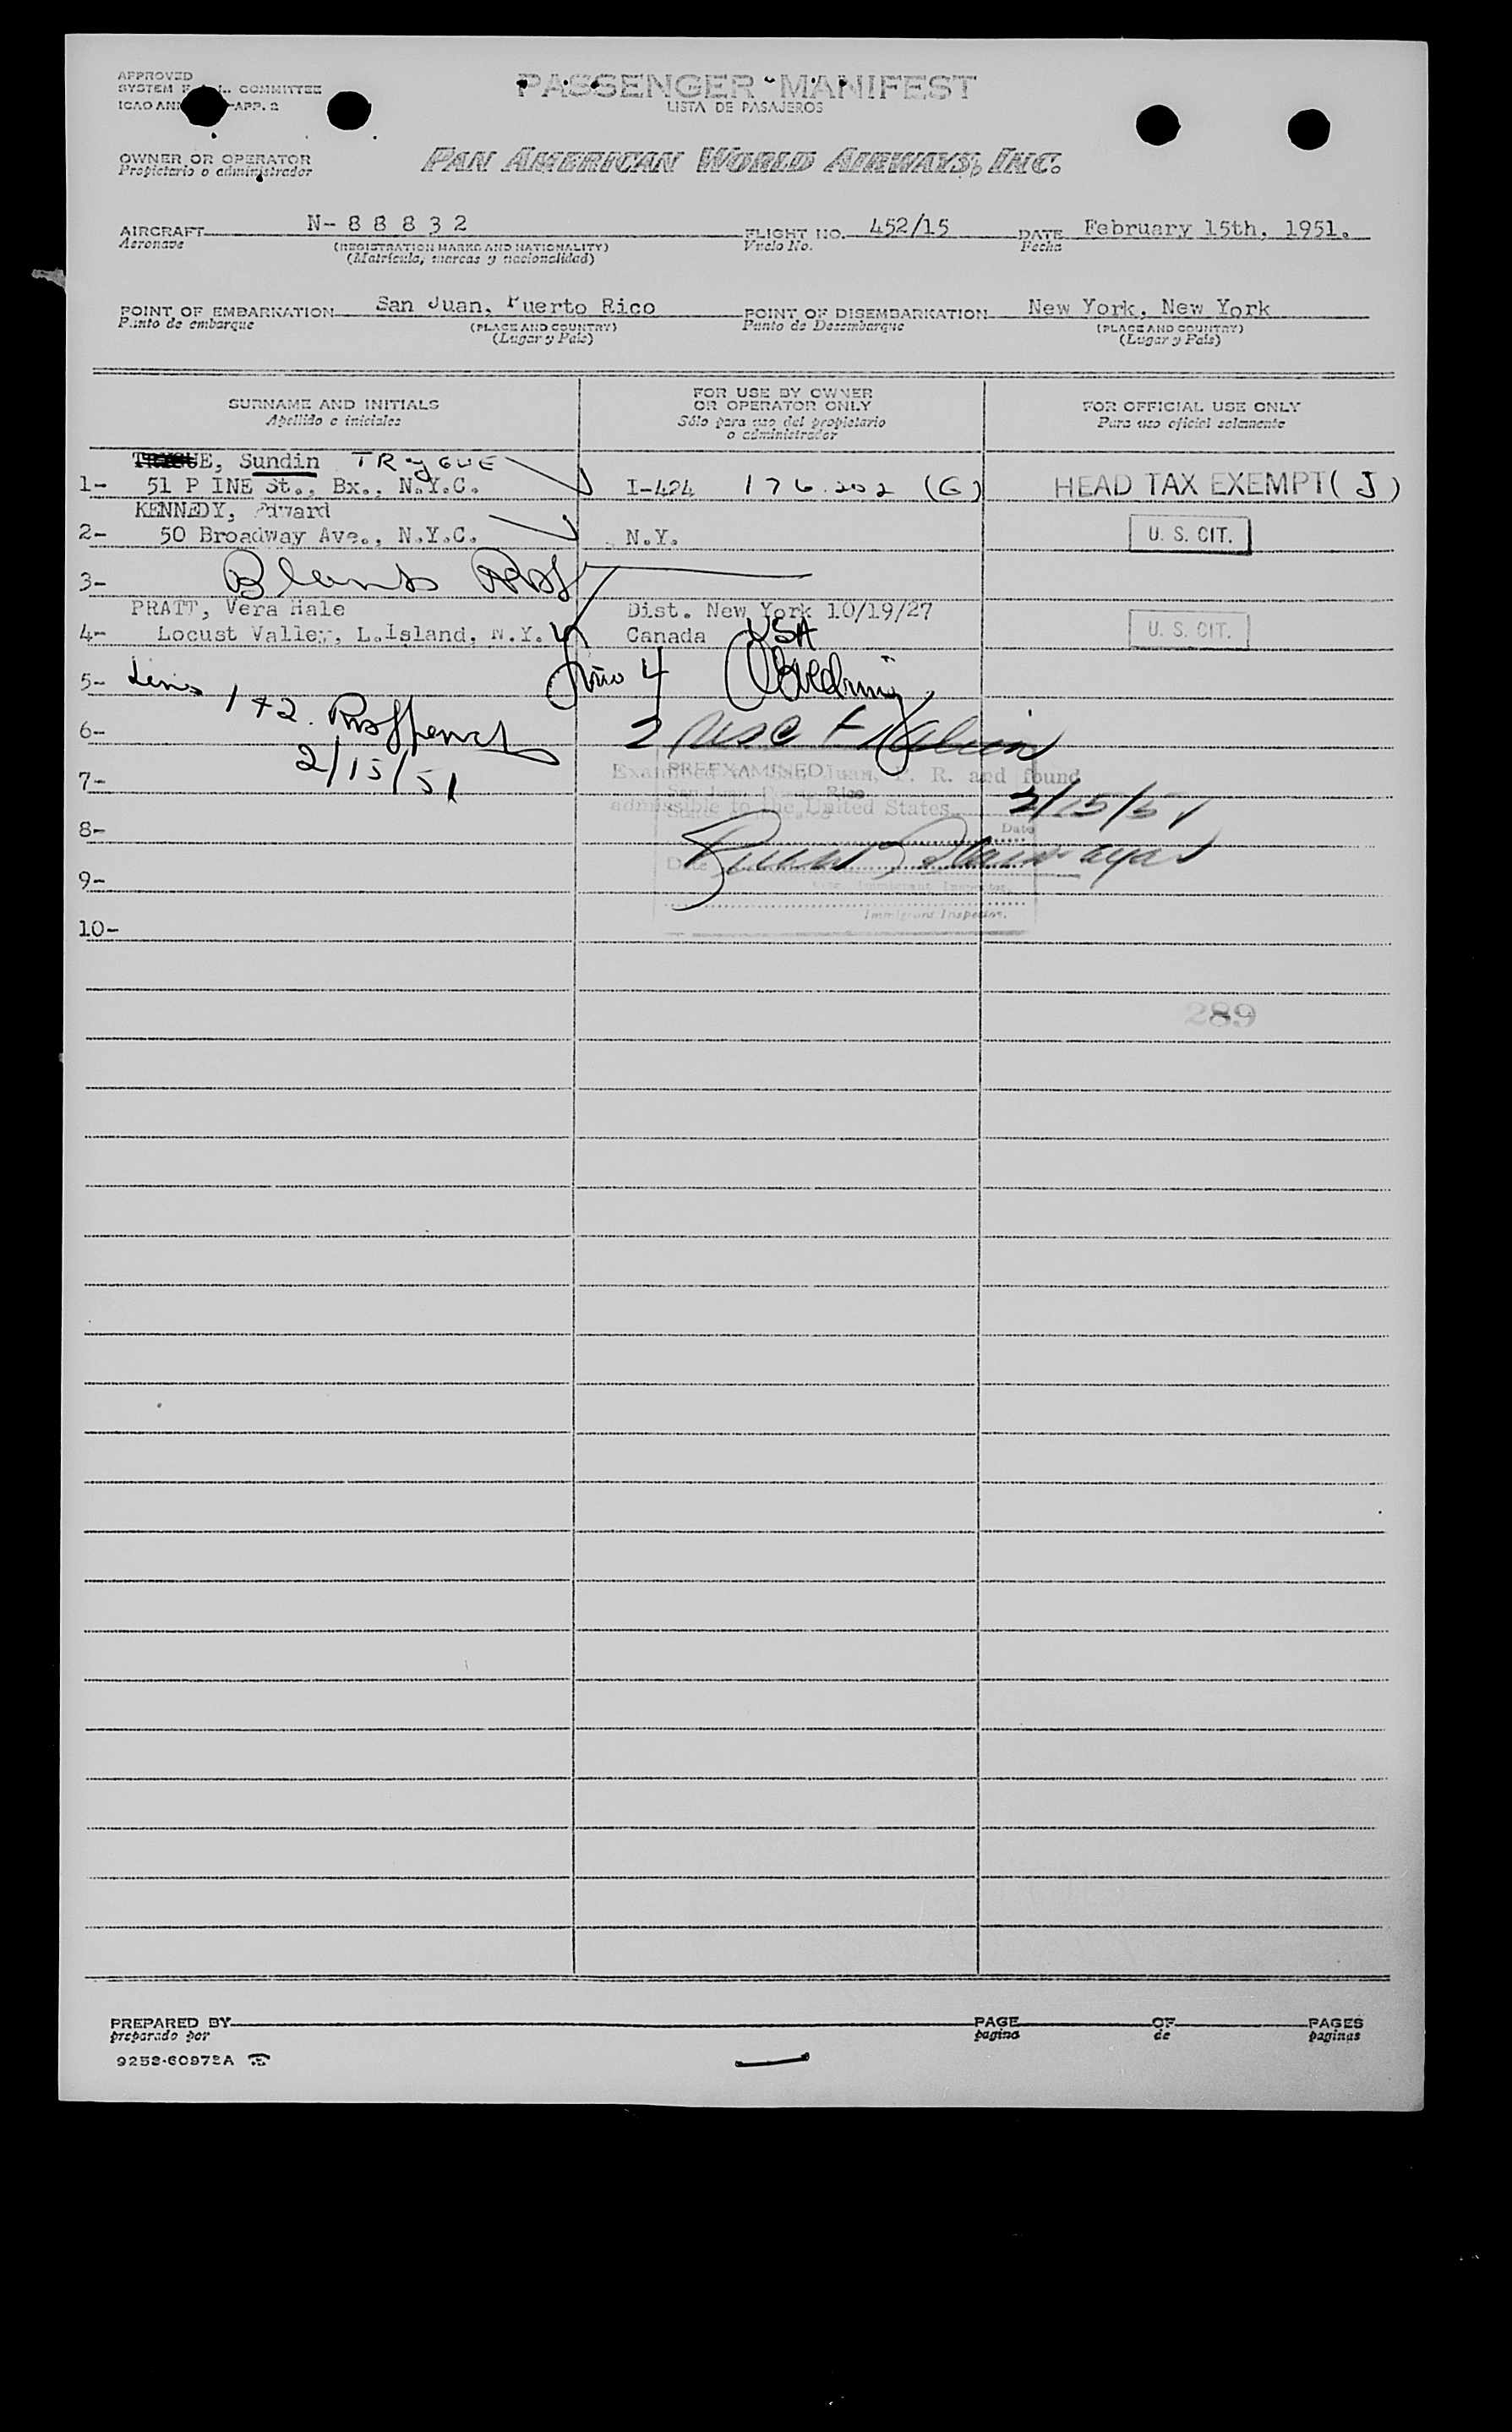 APPROVED
SYSTEM COMMITTEE
ICAO APP. 2
PASSENGER MANIFEST
LISTA DE PASAJEROS
OWNER OR OPERATOR
Propietario o administrador
PAN AMERICAN WORLD AIRWAYS, INC.
AIRCRAFT N-88832 FLIGHT NO. 452/15 DATE February 15th, 1951.
Aeronave (REGISTRATION MARKS AND NATIONALITY) Vuelo No. Fecha
(Matrícula, marcas y nacionalidad)
POINT OF EMBARKATION San Juan, Puerto Rico POINT OF DISEMBARKATION New York, New York
Punto de embarque (PLACE AND COUNTRY) Punto de Desembarque (PLACE AND COUNTRY)
(Lugar y País) (Lugar y País)
SURNAME AND INITIALS
Apellido e iniciales
FOR USE BY OWNER
OR OPERATOR ONLY
Sólo para uso del propietario
o administrador
FOR OFFICIAL USE ONLY
Para uso oficial solamente
E, Sundin TRyGUE
1- 51 P INE St., Bx., N.Y.C. I-424 176.202 (G) HEAD TAX EXEMPT (J)
KENNEDY, Edward
2- 50 Broadway Ave., N.Y.C. N.Y. U. S. CIT.
3-
PRATT, Vera Hale Dist. New York 10/19/27
4- Locust Valley, L.Island, N.Y. Canada USA U. S. CIT.
5- Lines 1+2. 4
6- 2 USC
2/15/51
7- Examined at San Juan, P. R. and found
PREEXAMINED
San Juan, Puerto Rico
admissible to the United States. 2/15/51
8- Date
Date
9-
Immigrant Inspector.
Immigrant Inspector.
10-
289
PREPARED BY PAGE OF PAGES
preparado por pagina de paginas
9252-60972A